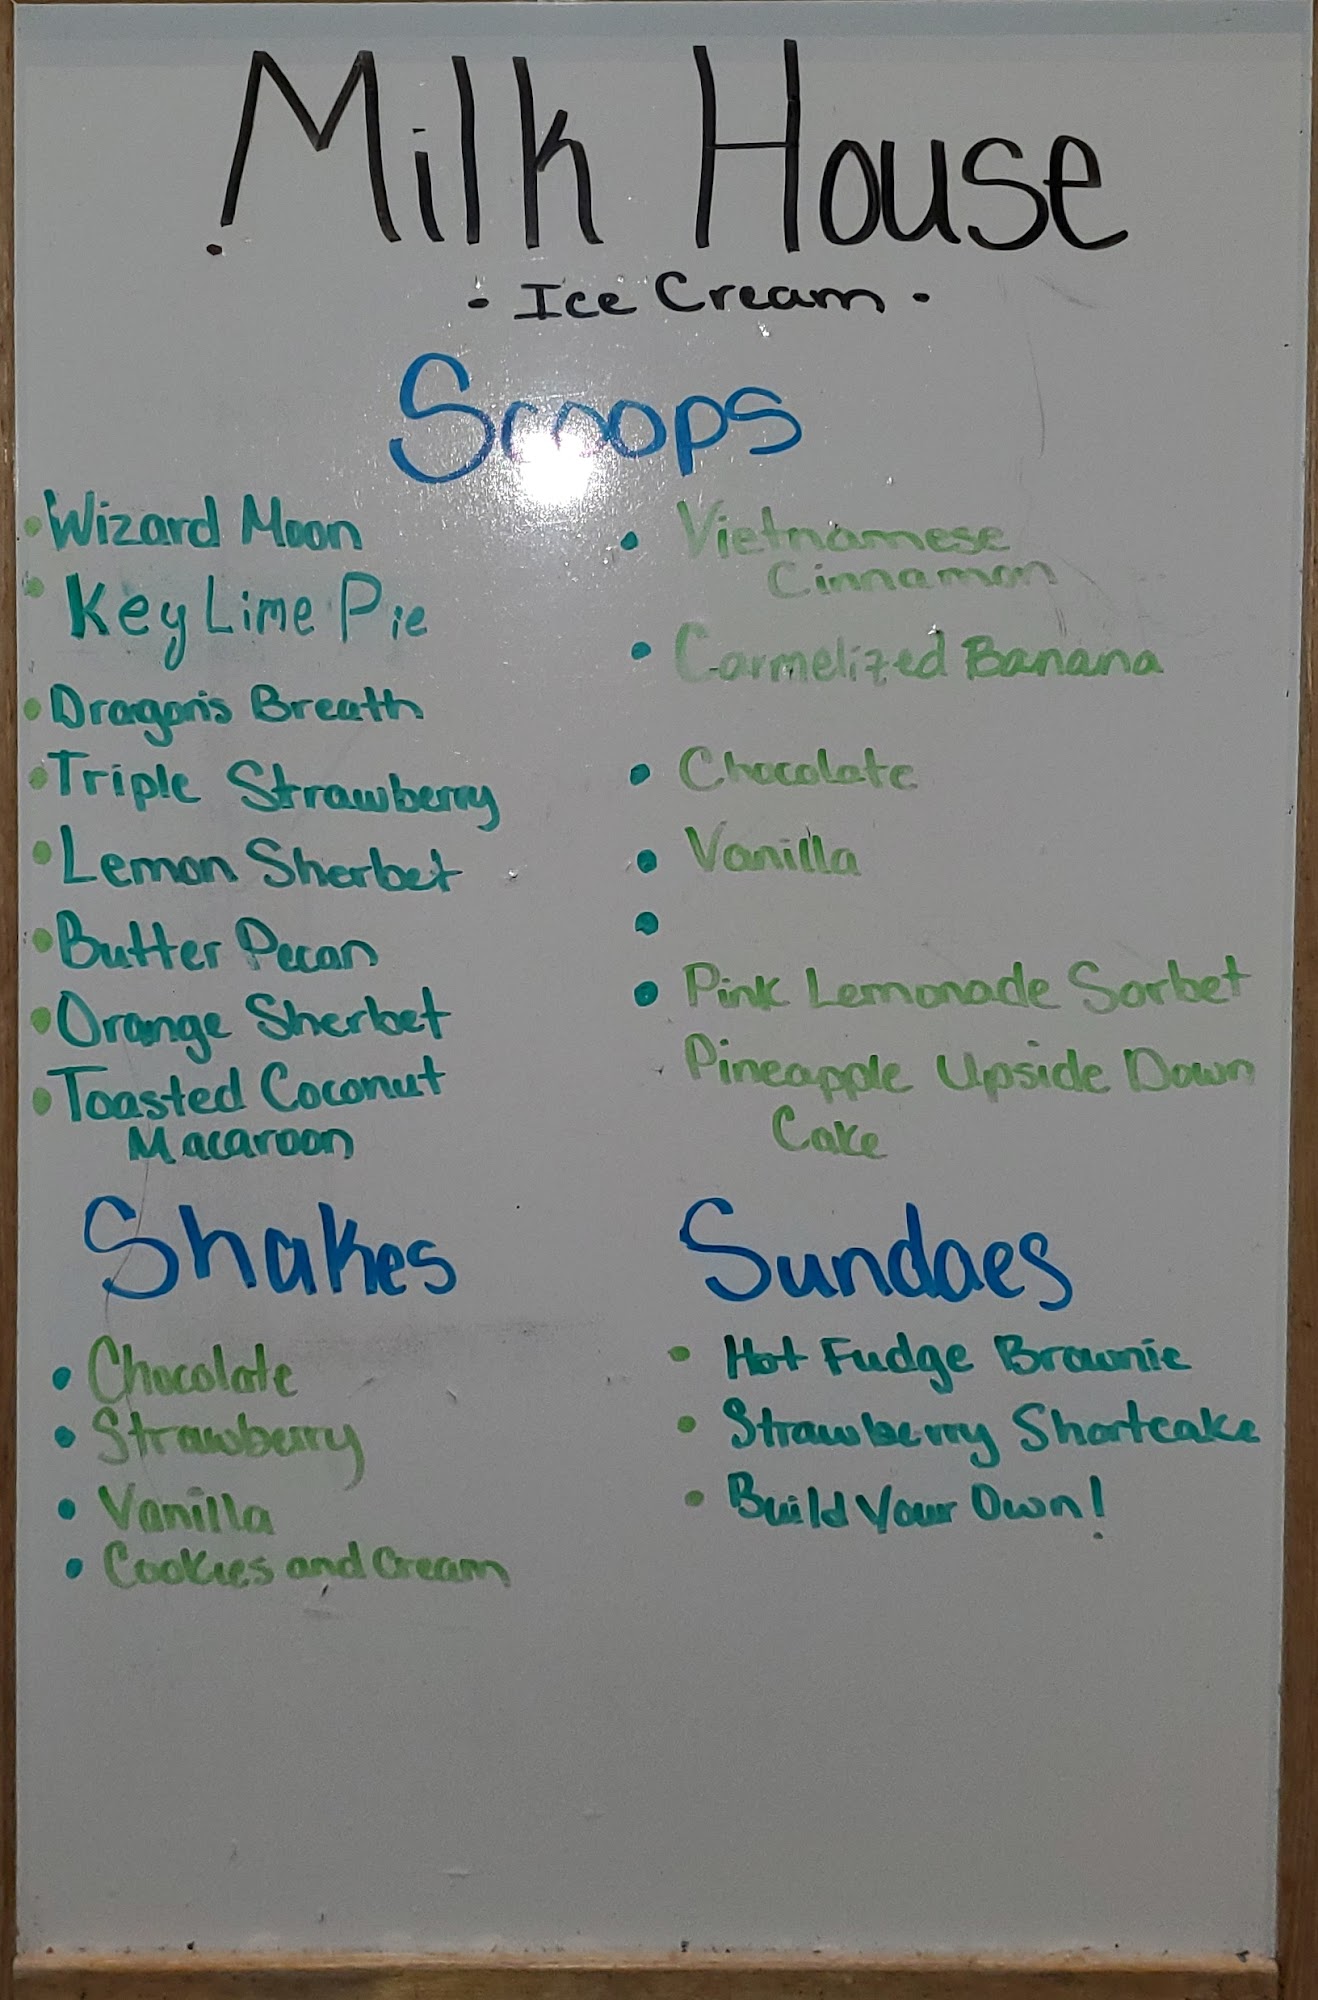 Milk House
- Ice Cream -
Scoops
• Wizard Moon
• Key Lime Pie
• Dragon's Breath
• Triple Strawberry
• Lemon Sherbet
• Butter Pecan
• Orange Sherbet
• Toasted Coconut
Macaroon
• Vietnamese
Cinnamon
• Carmelized Banana
• Chocolate
• Vanilla
•
• Pink Lemonade Sorbet
Pineapple Upside Down
Cake
Shakes
• Chocolate
• Strawberry
• Vanilla
• Cookies and Cream
Sundaes
• Hot Fudge Brownie
• Strawberry Shortcake
• Build Your Own!